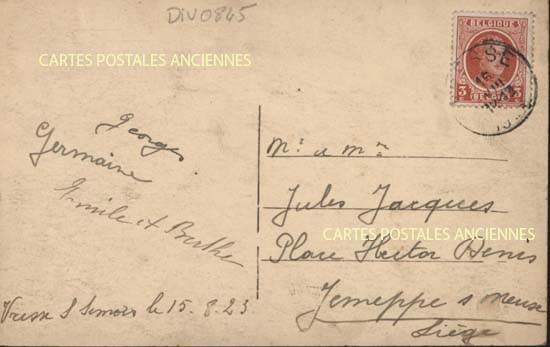 DIV0845
CARTES POSTALES ANCIENNES
BELGIQUE
3 3
BELGIË
Georges
Germaine
Emile et Berthe
Vresse s Semois le 15.8.23
Mr & Mme
Jules Jacques
CARTES POSTALES ANCIENNES
Place Hector Denis
Jemeppe s meuse
Liége